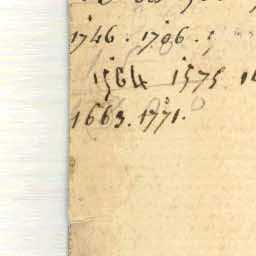 1746. 1786.
1564 1575
1663. 1771.